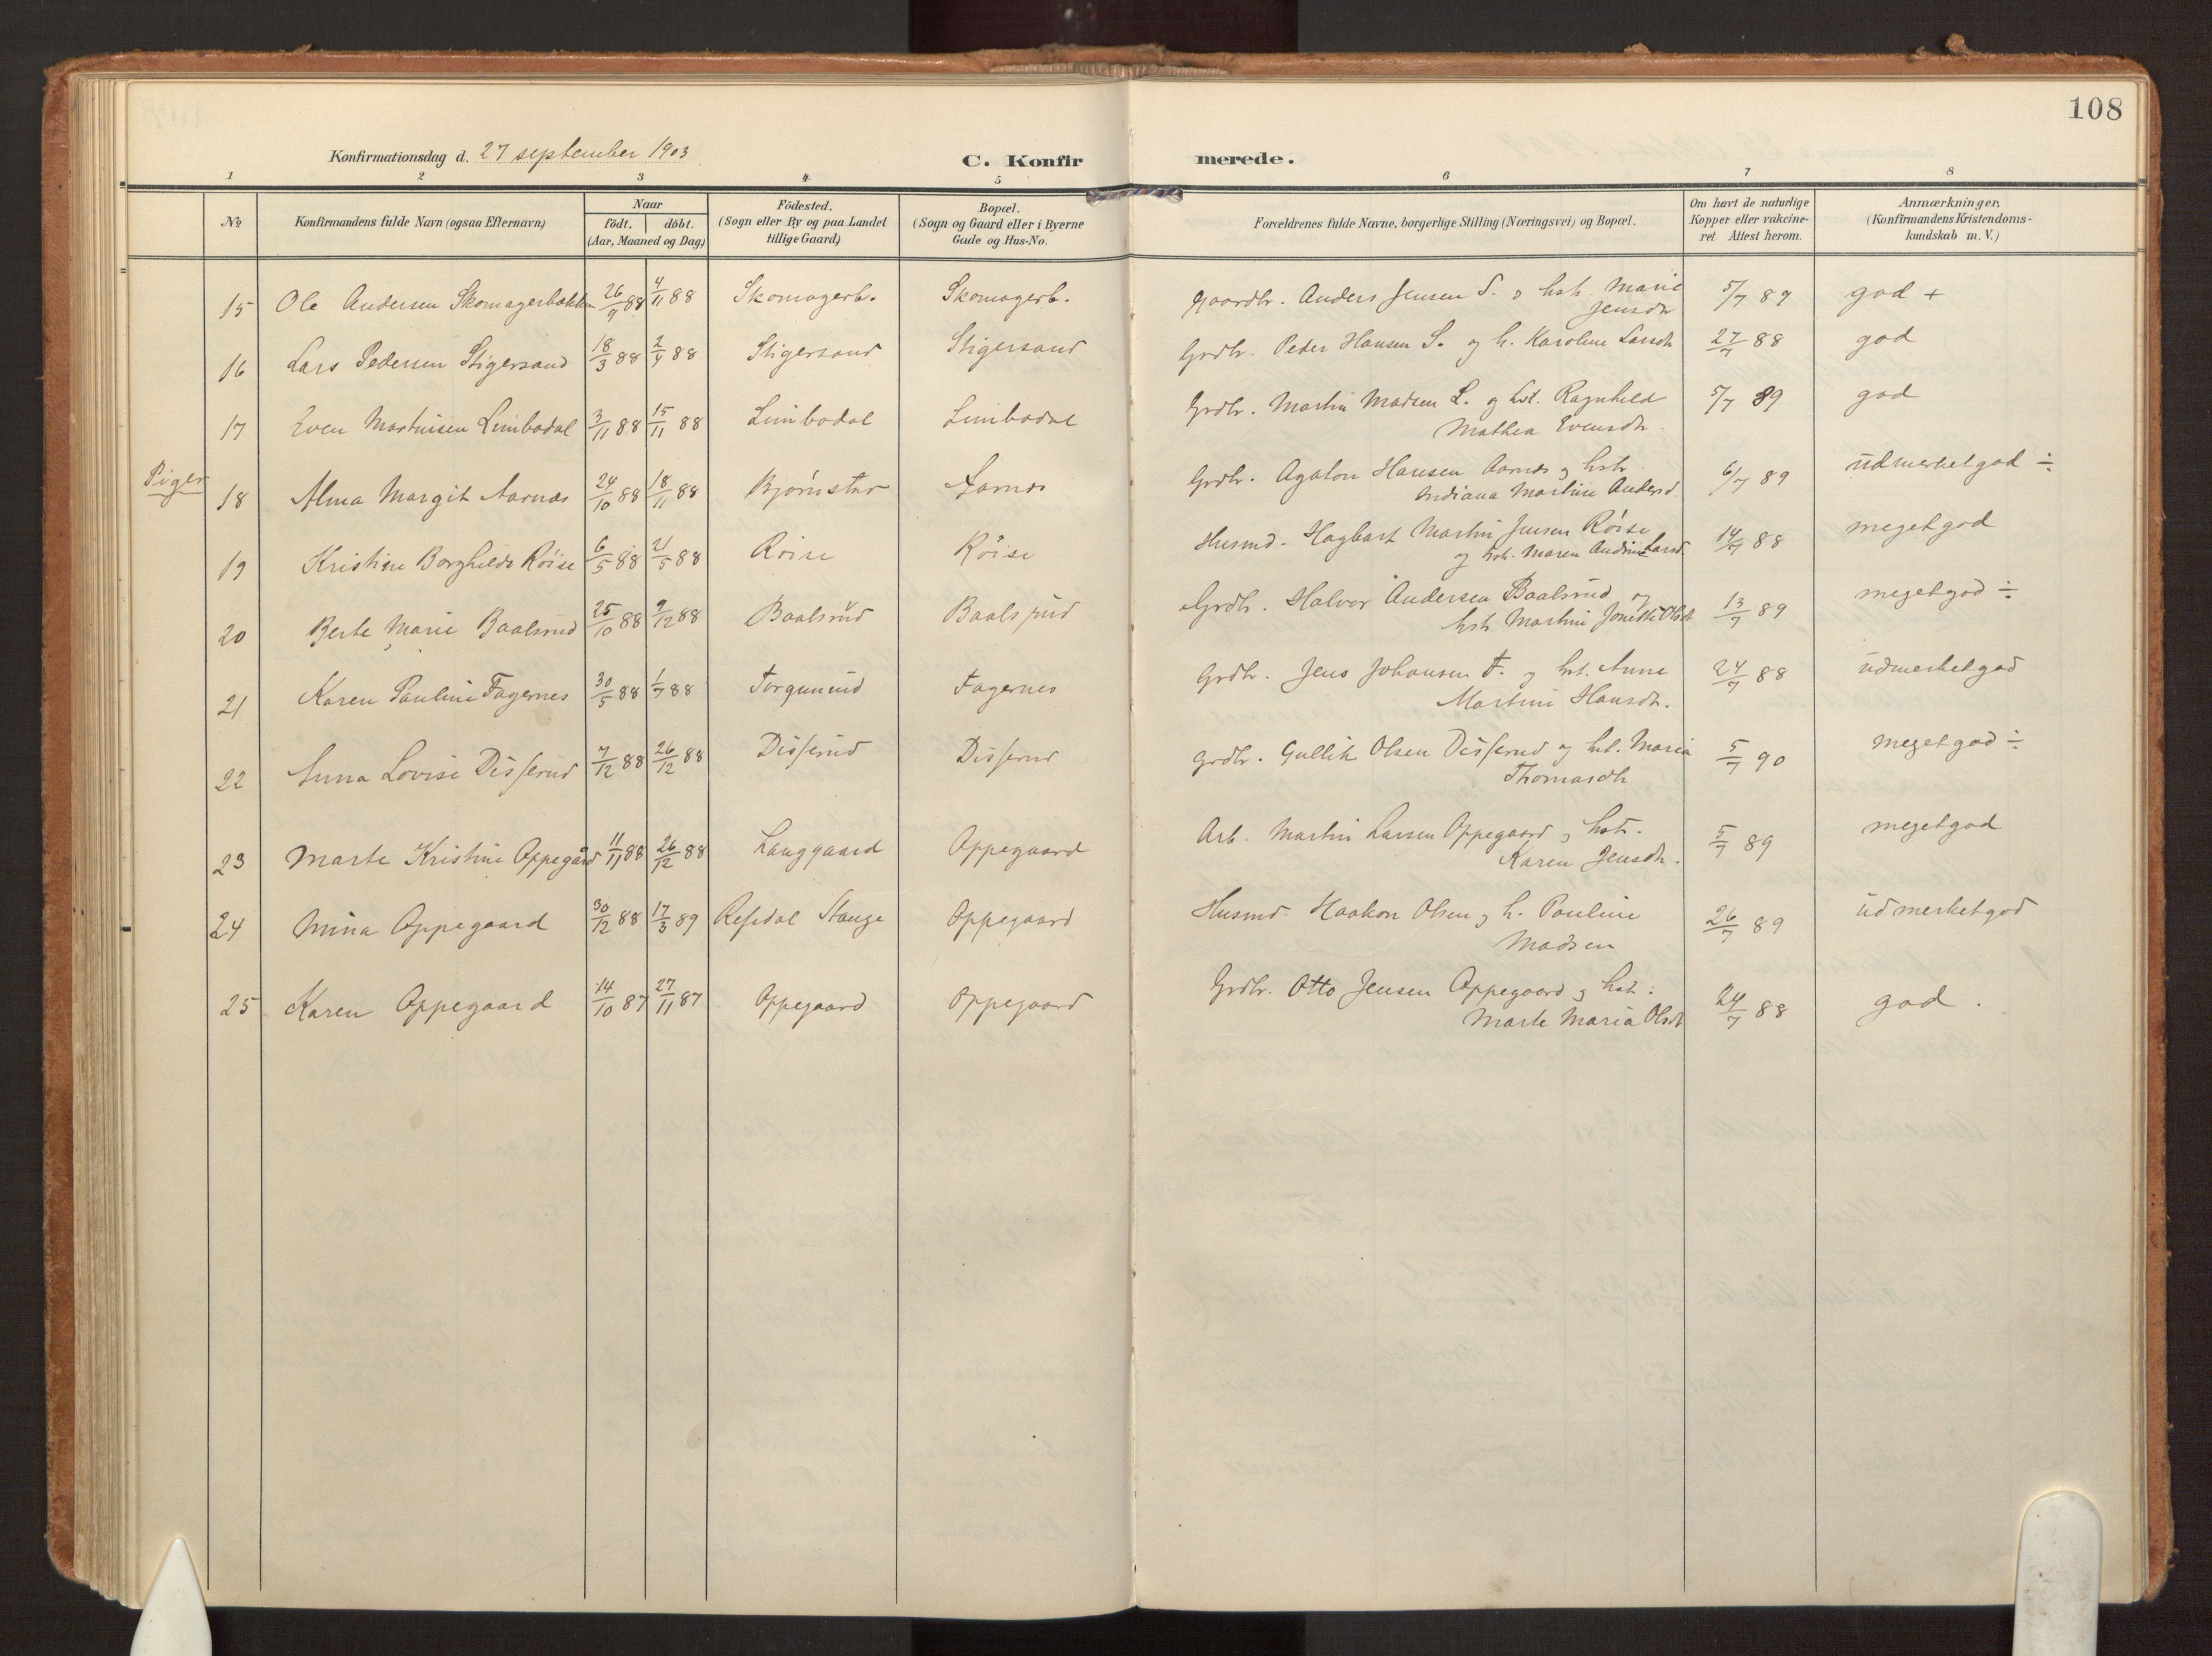 108
Konfirmationsdag d. 27 september 1903
C. Konfirmerede.
1 2 3 4 5 6 7 8
No
Konfirmandens fulde Navn (ogsaa Efternavn)
Naar
födt. döbt.
(Aar, Maaned og Dag)
Födested.
(Sogn eller By og paa Landet
tillige Gaard)
Bopæl.
(Sogn og Gaard eller i Byerne
Gade og Hus-No.
Forældrenes fulde Navne, borgerlige Stilling (Næringsvei) og Bopæl.
Om havt de naturlige
Kopper eller vakcine-
ret Attest herom.
Anmærkninger,
(Konfirmandens Kristendoms-
kundskab m. V.)
15 Ole Andersen Skomagerbakken 26/9 88 4/11 88 Skomagerb. Skomagerb. Gaardbr. Anders Jensen S. o hst. Marie 5/7 89 god +
Jensdr
16 Lars Pedersen Stigersand 18/3 88 2/4 88 Stigersand Stigersand Grdbr. Peder Hansen S. og h. Karoline Larsdr 27/7 88 god
17 Even Martinisen Limbodal 3/11 88 15/11 88 Limbodal Limbodal Grdbr. Martin Madsen L. og hst. Ragnhild 5/7 89 god
Mathea Evensdr
Piger
18 Alma Margit Aarnæs 24/10 88 18/11 88 Bjørnstad Aarnæs Grdbr. Agaton Hansen Aarnæs og hstr 6/7 89 udmerket god ÷
Indiana Martine Andersd.
19 Kristine Borghilds Röise 6/5 88 21/5 88 Röise Röise Husmd. Hagbart Martin Jensen Röise 14/7 88 meget god
og hst. Maren Andrine Larsd.
20 Berte Marie Baalsrud 25/10 88 9/12 88 Baalsrud Baalsrud Grdbr. Halvor Andersen Baalsrud og 13/7 89 meget god ÷
hst. Martine Jonette Olsdt
21 Karen Pauline Fagernes 30/5 88 1/7 88 Torgunrud Fagernes Grdbr. Jens Johansen F. og hst. Anne 24/7 88 udmerket god
Martine Hansdr.
22 Anna Lovise Disserud 7/12 88 26/12 88 Disserud Disserud Grdbr. Gullik Olsen Disserud og hst. Maria 5/7 90 meget god ÷
Thomasdr
23 Marte Kristine Oppegård 11/11 88 26/12 88 Langgaard Oppegaard Arb. Martin Larsen Oppegaard og hstr. 5/7 89 meget god
Karen Jensdr.
24 Mina Oppegaard 30/12 88 17/3 89 Refsdal Stange Oppegaard Husmd. Haakon Olsen og h. Pauline 26/7 89 udmerket god
Madsen
25 Karen Oppegaard 14/10 87 27/11 87 Oppegaard Oppegaard Grdbr. Otto Jensen Oppegaard og hst: 24/7 88 god.
Marte Maria Olsdt